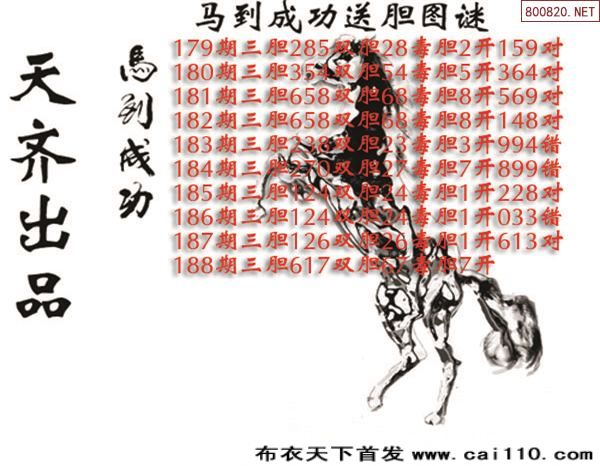 马到成功送胆图谜
800820.NET
天齐出品
馬到成功
179期三胆285双胆28毒胆2开159对
180期三胆354双胆54毒胆5开364对
181期三胆658双胆68毒胆8开569对
182期三胆658双胆68毒胆8开148对
183期三胆238双胆23毒胆3开994错
184期三胆270双胆27毒胆7开899错
185期三胆124双胆24毒胆1开228对
186期三胆124双胆24毒胆1开033错
187期三胆126双胆26毒胆1开613对
188期三胆617双胆67毒胆7开
布衣天下首发 www.cai110.com